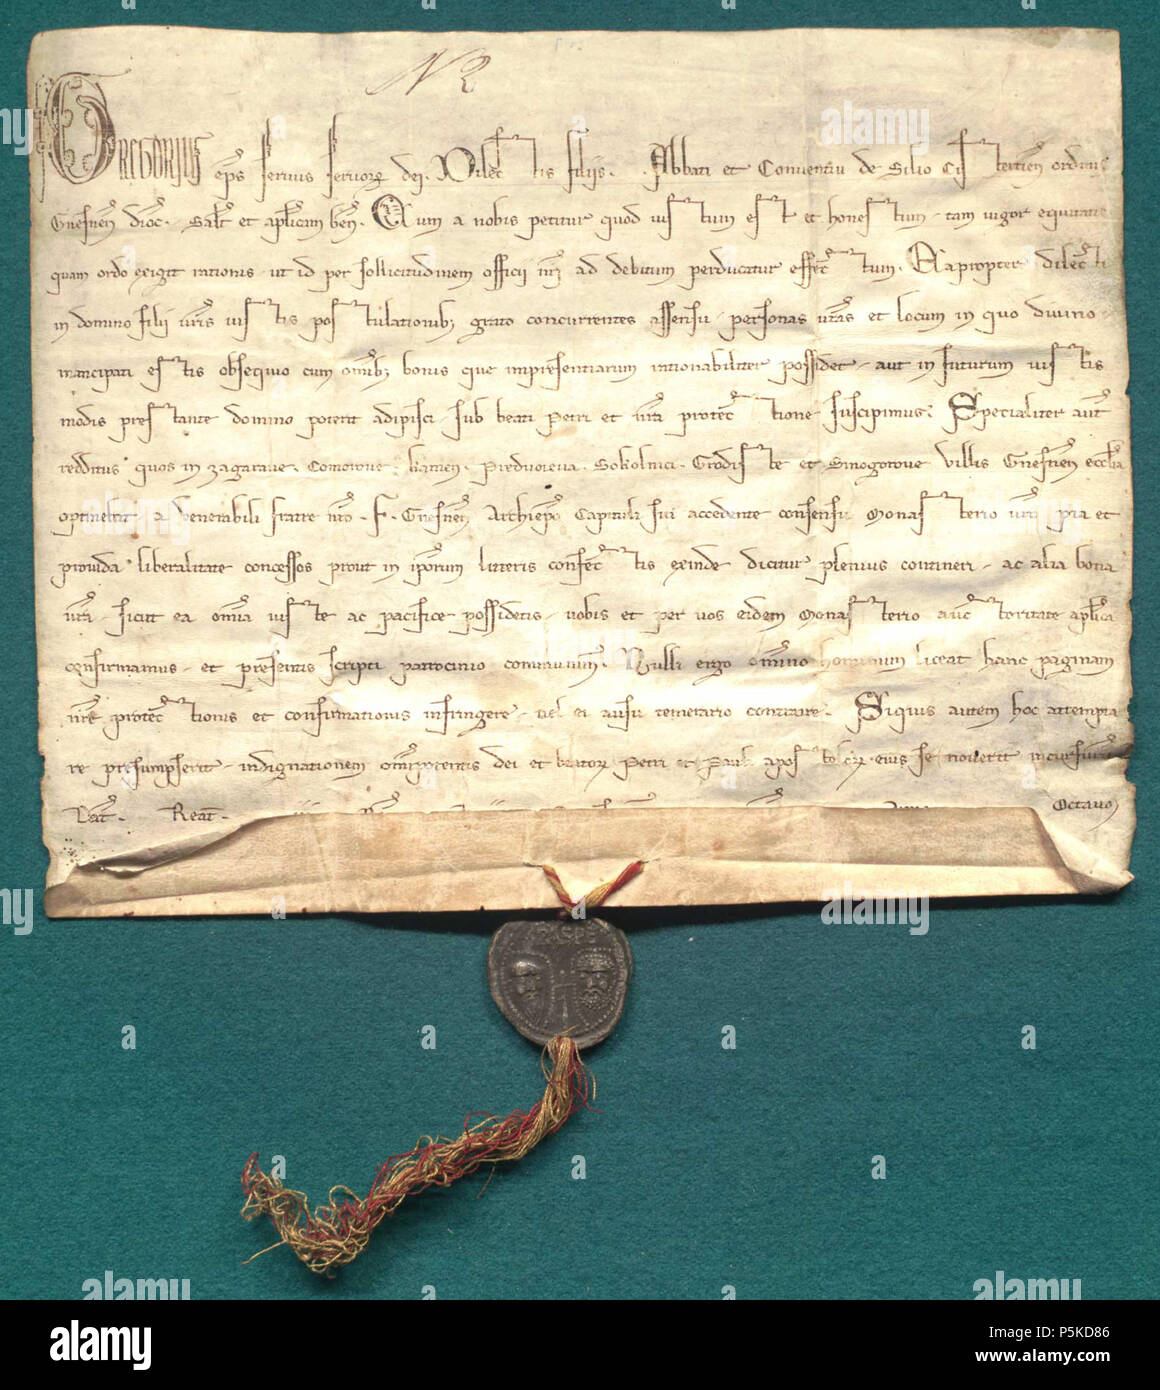 GREGORIUS ep̄s servus servoꝝ dei. Dilectis filiis. Abbati et Conventui de Silio Cisterciēn ordinis
Gnesnēn dioc̄. Salt̄ et aplicam beñ. Cum a nobis petitur quod iustum est et honestum, tam vigor equitatis
quam ordo exigit rationis, ut id per sollicitudinem officii nr̄i ad debitum perducatur effectum. Eapropter dilecti
in domino filii ur̄is iustis postulationibꝫ grato concurrentes assensu, personas ur̄as et locum in quo divino
mancipati estis obsequio cum om̄ibꝫ bonis que impresentiarum rationabiliter possidet, aut in futurum iustis
modis prestante domino poterit adipisci, sub beati Petri et nr̄a protectione suscipimus. Specialiter aut̄
redditus quos in Zagaraue, Comorove, Kamen, Predvoreva, Sokolnici, Grodiste et Sinogorove villis Gnesnēn eccl̄ia
optinebat a venerabili fratre nr̄o .F. Gnesnēn Archiep̄o Capituli sui accedente consensu Monasterio ur̄o pia et
provida liberalitate concessos prout in ip̄orum litteris confectis exinde dicitur plenius contineri, ac alia bona
ur̄a, sicut ea om̄ia iuste ac pacifice possidetis, vobis et per vos eidem Monasterio auctoritate aplica
confirmamus, et presentis scripti patrocinio communimus. Nulli ergo om̄ino hominum liceat hanc paginam
nr̄e protectionis et confirmationis infringere, vel ei ausu temerario contraire. Siquis autem hoc attempta
re presumpserit, indignationem om̄ipotentis dei et beatoꝝ Petri et Pauli apostoloꝝ eius se noverit incursurum
Dat̄. Reat̄. Octavo
SPASPE
P5KD86
alamy
www.alamy.com